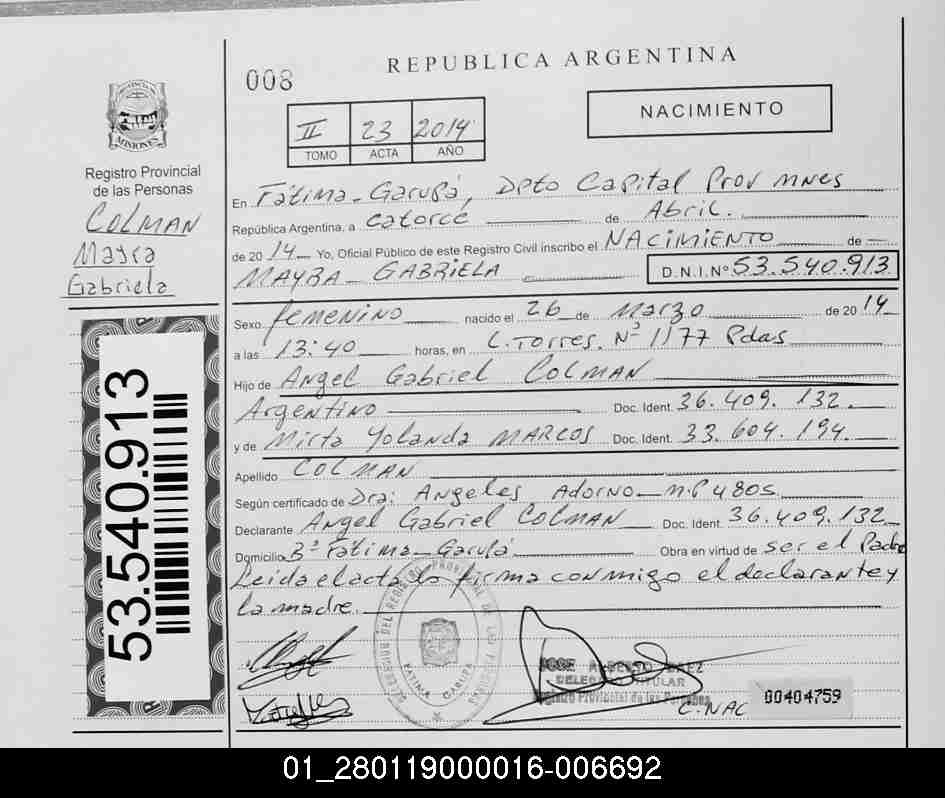 008
REPUBLICA ARGENTINA
NACIMIENTO
II 23 2014
TOMO ACTA AÑO
PROVINCIA DE
MISIONES
Registro Provincial
de las Personas
COLMAN
Mayra
Gabriela
53.540.913
En Fátima-Garupá, Dpto Capital Prov mnes
República Argentina, a catorce de Abril.
de 2014 Yo, Oficial Público de este Registro Civil inscribo el NACIMIENTO de
MAYRA GABRIELA D.N.I.Nº 53.540.913
Sexo femenino nacido el 26 de marzo de 2014
a las 13:40 horas, en C. Torres. Nº 1177 Pdas
Hijo de Angel Gabriel COLMAN
Argentino Doc. Ident. 36.409.132.
y de Mirta Yolanda MARCOS Doc. Ident. 33.604.194.
Apellido COLMAN
Según certificado de Dra: Angeles Adorno M.P 4805
Declarante Angel Gabriel COLMAN Doc. Ident. 36.409.132
Domicilio Bº Fátima-Garupá Obra en virtud de ser el Padre
Leida el acta lo firma conmigo el declarante y
la madre.
FATIMA GARUPA
JOSE ALBERTO BAEZ
DELEGADO TITULAR
Registro Provincial de las Personas
C.NAC 00404759
01_280119000016-006692